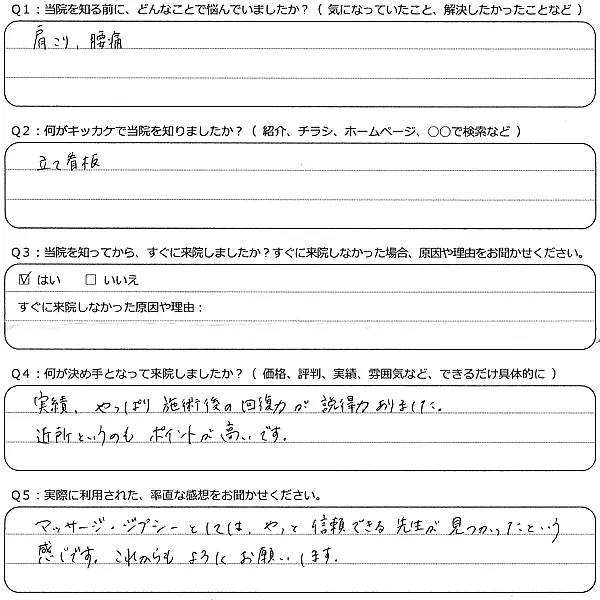 Q1：当院を知る前に、どんなことで悩んでいましたか？（ 気になっていたこと、解決したかったことなど ）
肩こり、腰痛
Q2：何がキッカケで当院を知りましたか？（ 紹介、チラシ、ホームページ、〇〇で検索など ）
立て看板
Q3：当院を知ってから、すぐに来院しましたか？すぐに来院しなかった場合、原因や理由をお聞かせください。
☑ はい □ いいえ
すぐに来院しなかった原因や理由：
Q4：何が決め手となって来院しましたか？（ 価格、評判、実績、雰囲気など、できるだけ具体的に ）
実績、やっぱり施術後の回復力が説得力ありました。
近所というのもポイントが高いです。
Q5：実際に利用された、率直な感想をお聞かせください。
マッサージ・ジプシーとしては、やっと信頼できる先生が見つかったという
感じです。これからもよろしくお願いします。